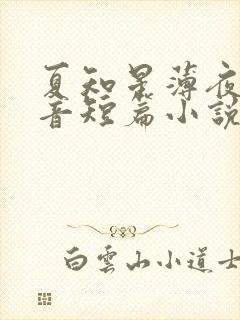 夏知星薄夜
音短篇小說
白雲山小道士